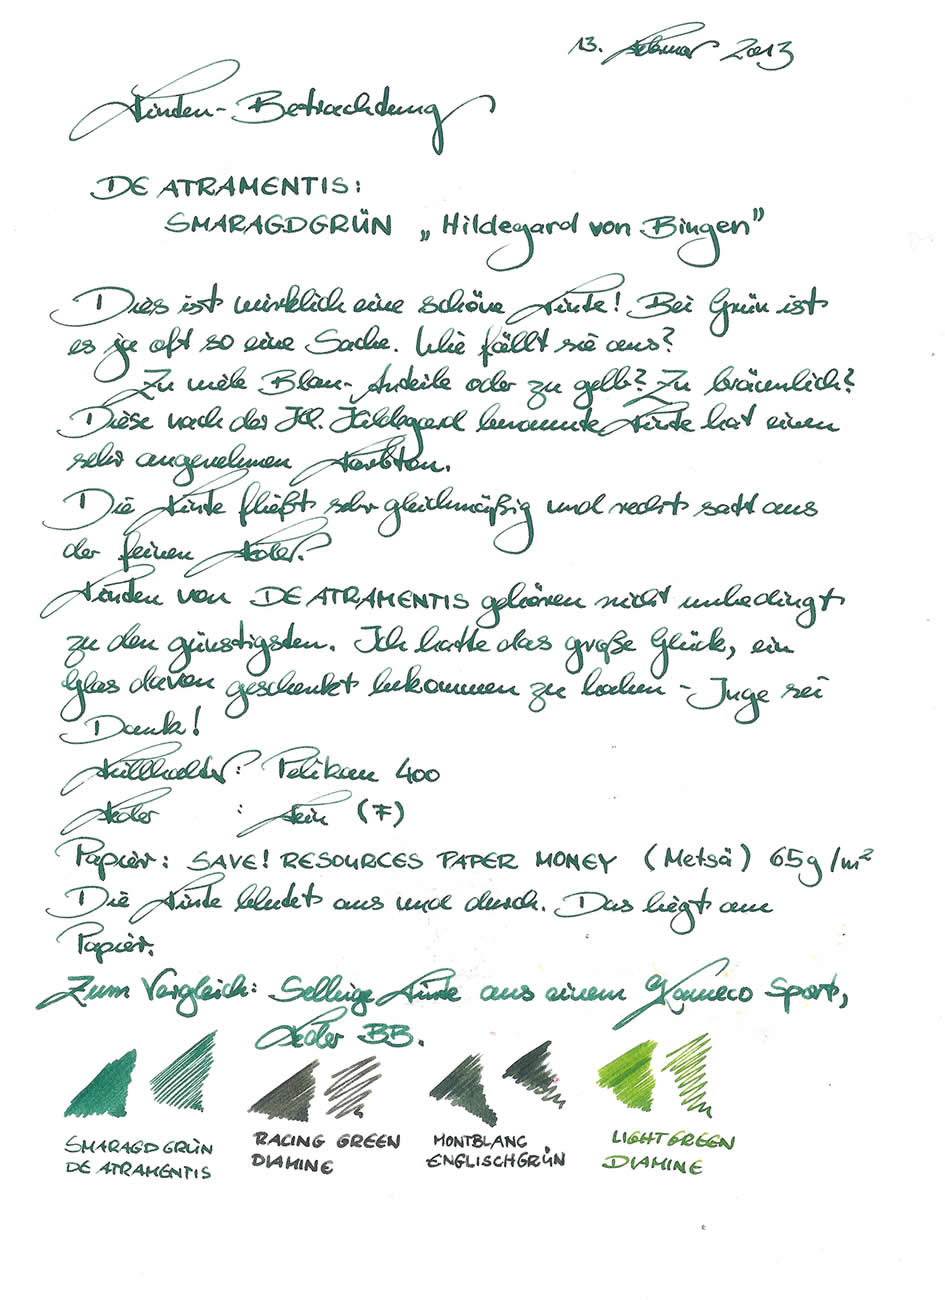 13. Februar 2013
Tinten-Betrachtung
DE ATRAMENTIS:
SMARAGDGRÜN „Hildegard von Bingen”
Dies ist wirklich eine schöne Tinte! Bei Grün ist
es ja oft so eine Sache. Wie fällt sie aus?
Zu viele Blau-Anteile oder zu gelb? Zu bräunlich?
Diese nach der Hl. Hildegard benannte Tinte hat einen
sehr angenehmen Farbton.
Die Tinte fließt sehr gleichmäßig und recht satt aus
der feinen Feder.
Tinten von DE ATRAMENTIS gehören nicht unbedingt
zu den günstigsten. Ich hatte das große Glück, ein
Glas davon geschenkt bekommen zu haben - Inge sei
Dank!
Füllhalter: Pelikan 400
Feder : Fein (F)
Papier: SAVE! RESOURCES PAPER MONEY (Metsä) 65g/m²
Die Tinte blutet aus und durch. Das liegt am
Papier.
Zum Vergleich: Selbige Tinte aus einem Kaweco Sport,
Feder BB.
SMARAGDGRÜN
DE ATRAMENTIS
RACING GREEN
DIAMINE
MONTBLANC
ENGLISCHGRÜN
LIGHT GREEN
DIAMINE